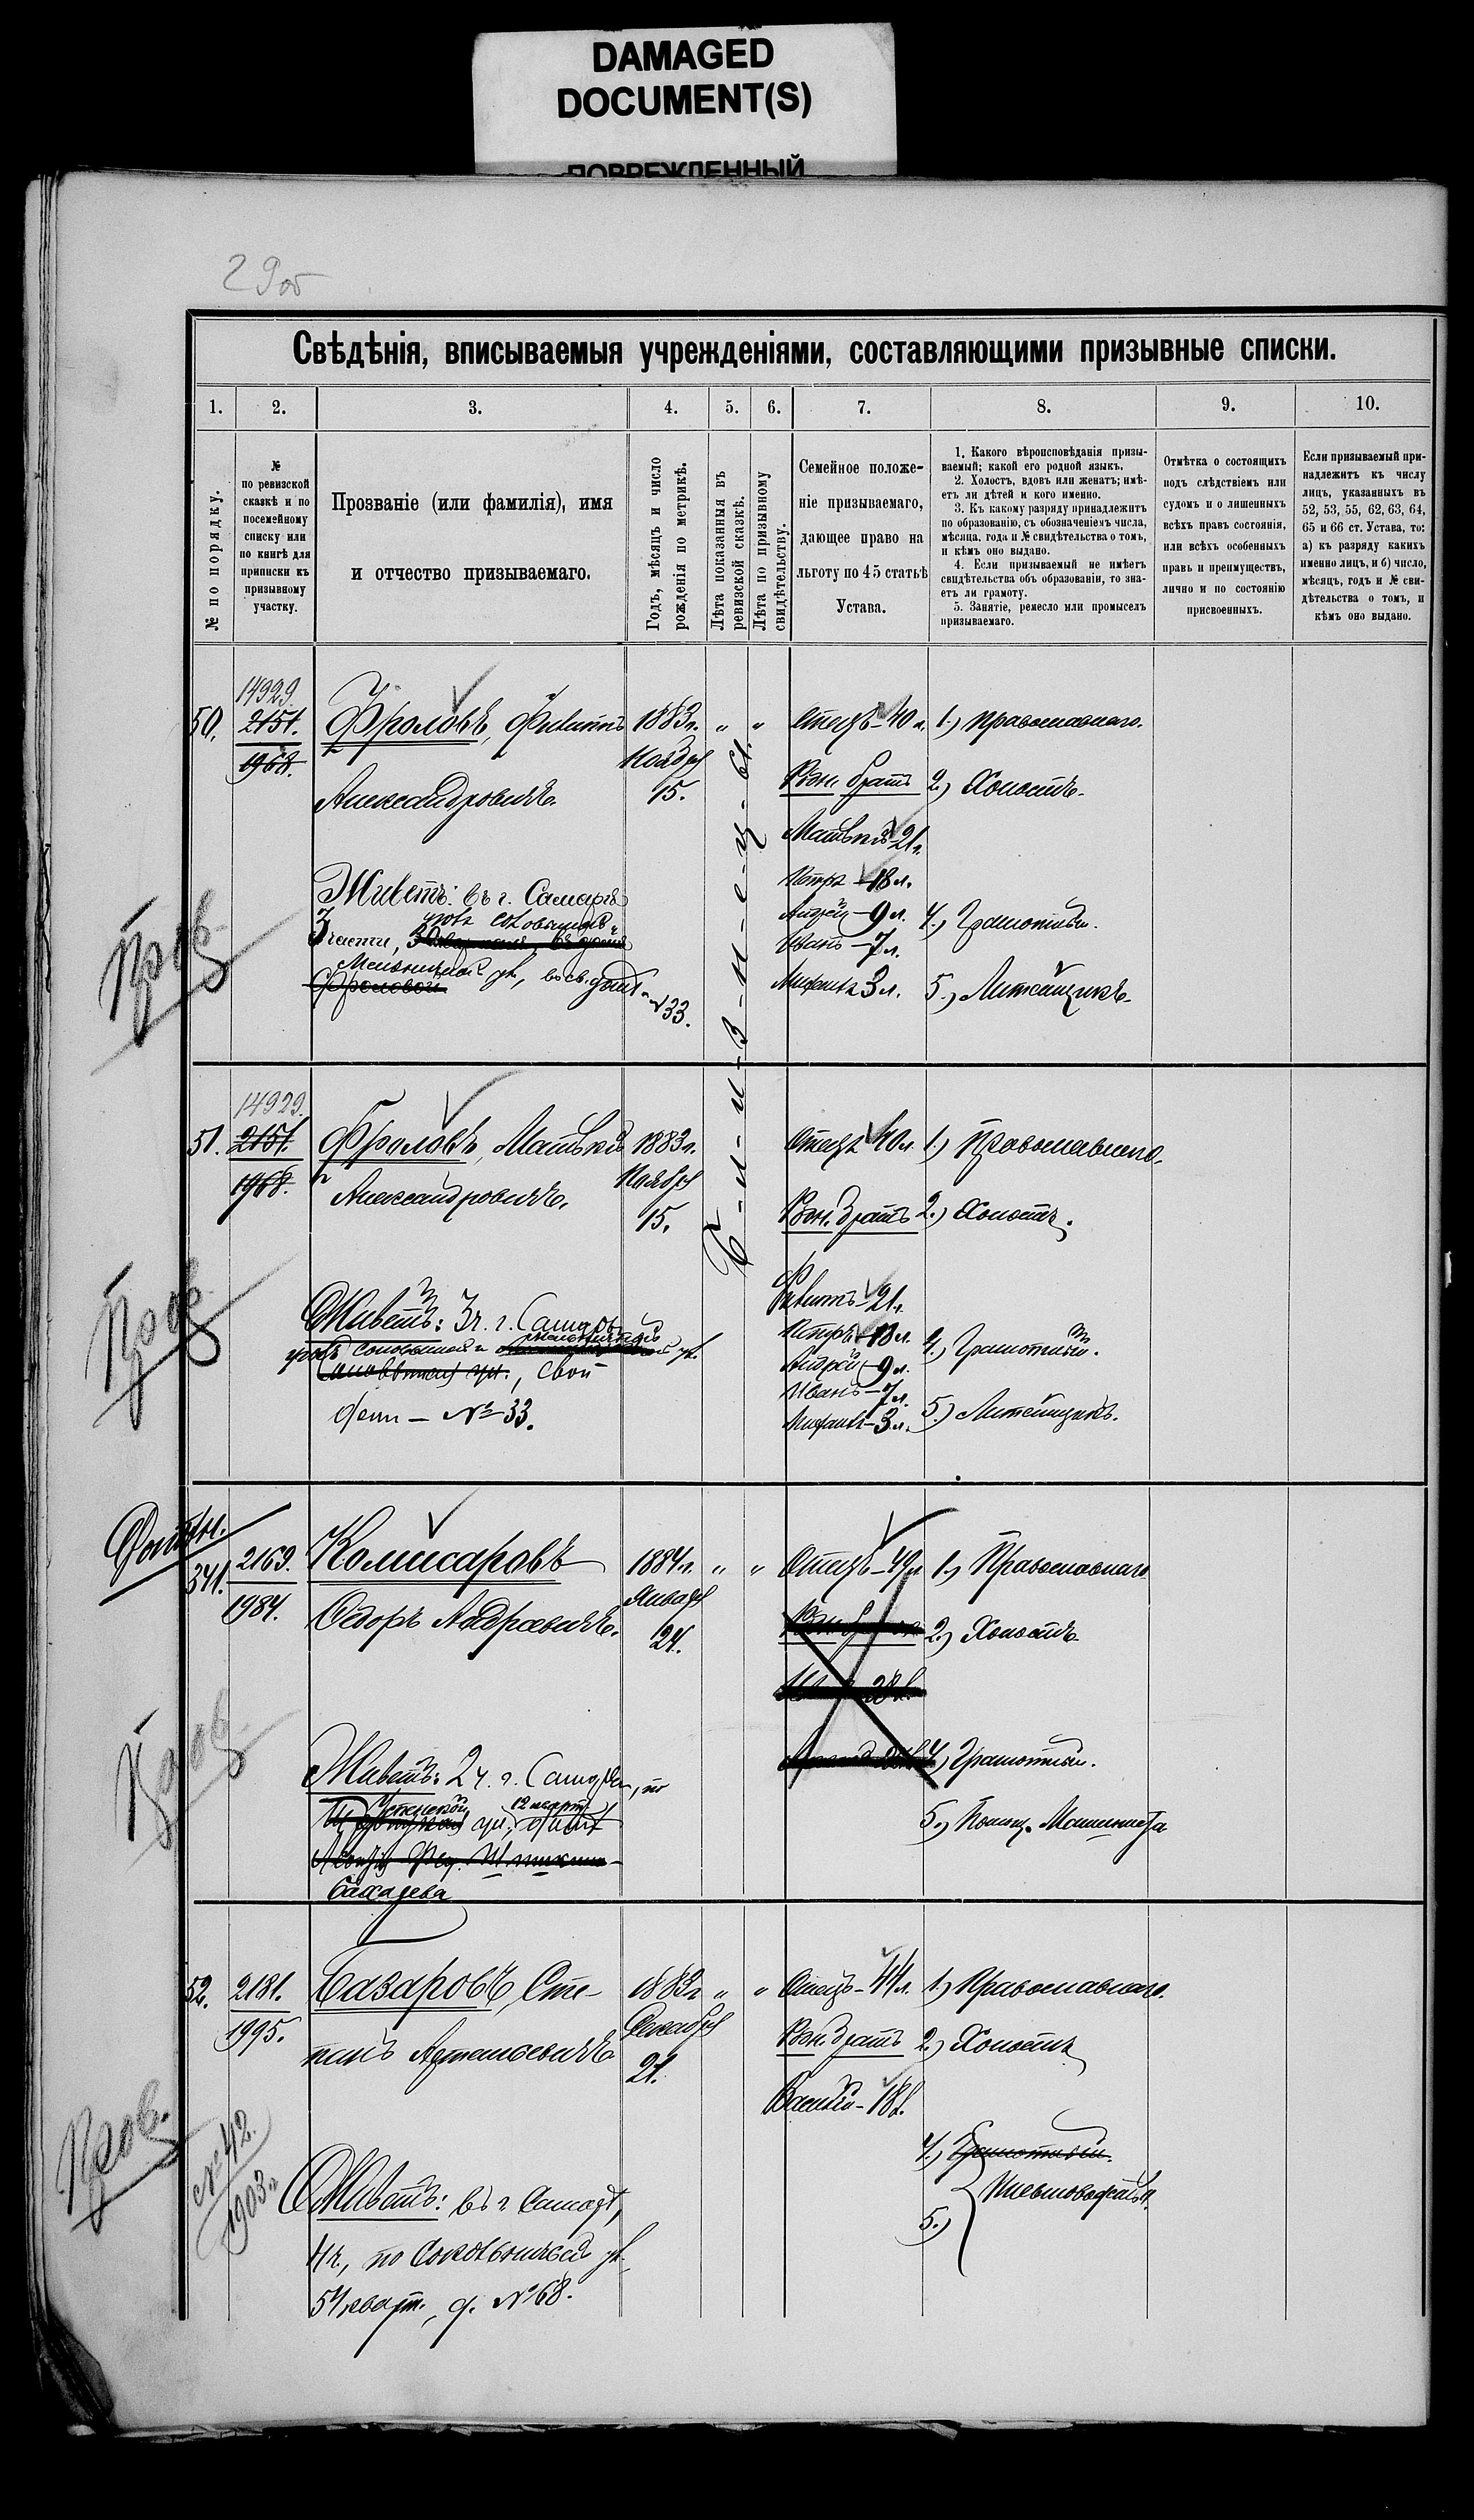 DAMAGED
DOCUMENT(S)
ПОВРЕЖДЕННЫЙ
29об
Свѣдѣнія, вписываемыя учрежденіями, составляющими призывные списки.
1. 2. 3. 4. 5. 6. 7. 8. 9. 10.
№ по порядку.
№
по ревизской
сказкѣ и по
посемейному
списку или
по книгѣ для
приписки къ
призывному
участку.
Прозваніе (или фамилія), имя
и отчество призываемаго.
Годъ, мѣсяцъ и число
рожденія по метрикѣ.
Лѣта показанныя въ
ревизской сказкѣ.
Лѣта по призывному
свидѣтельству.
Семейное положе-
ніе призываемаго,
дающее право на
льготу по 45 статьѣ
Устава.
1. Какого вѣроисповѣданія призы-
ваемый; какой его родной языкъ.
2. Холостъ, вдовъ или женатъ; имѣ-
етъ ли дѣтей и кого именно.
3. Къ какому разряду принадлежитъ
по образованію, съ обозначеніемъ числа,
мѣсяца, года и № свидѣтельства о томъ,
и кѣмъ оно выдано.
4. Если призываемый не имѣетъ
свидѣтельства объ образованіи, то зна-
етъ ли грамоту.
5. Занятіе, ремесло или промыселъ
призываемаго.
Отмѣтка о состоящихъ
подъ слѣдствіемъ или
судомъ и о лишенныхъ
всѣхъ правъ состоянія,
или всѣхъ особенныхъ
правъ и преимуществъ,
лично и по состоянію
присвоенныхъ.
Если призываемый при-
надлежитъ къ числу
лицъ, указанныхъ въ
52, 53, 55, 62, 63, 64,
65 и 66 ст. Устава, то:
а) къ разряду какихъ
именно лицъ, и б) число,
мѣсяцъ, годъ и № сви-
дѣтельства о томъ, и
кѣмъ оно выдано.
50.
14929.
2151.
1968.
Фроловъ, Филиппъ
Александровичъ.
Живетъ: въ г. Самарѣ
3 части,
Фроловой
№ 33.
1883г.
Ноября
15.
" "
Б-л-и-з-н-е-ц-ы.
Отецъ-40 л.
Род. братъ
Матвѣй-21 л.
Петръ-18 л.
Андрей-9 л.
Иванъ-7 л.
Михаилъ 3 л.
1.) Православнаго.
2.) Холостъ.
4.) Грамотный.
5.) Литейщикъ.
Пров.
51.
14929.
2151.
1968.
Фроловъ, Матвѣй
Александровичъ.
Живетъ: 3 ч. г. Самары
свой
домъ - № 33.
1883г.
Ноября
15.
Отецъ 40 л.
Род. братъ
Филиппъ-21 л.
Петръ-18 л.
Андрей-9 л.
Иванъ-7 л.
Михаилъ-3 л.
1.) Православнаго.
2.) Холостъ.
4.) Грамотный.
5.) Литейщикъ.
Пров.
341.
2169.
1984.
Комисаровъ
Ѳедоръ Андреевичъ.
Живетъ: 2 ч. г. Самары, по
12 кварт.
ул., домъ
1884г.
Января
24.
" "
Отецъ-49 л.
1.) Православнаго
2.) Холостъ
4.) Грамотный.
5.) Помощ. Машиниста
Пров.
52.
2181.
1995.
№ 42.
1903г.
Базаровъ, Сте-
панъ Артемьевичъ
Живетъ: въ г. Самарѣ,
4 ч., по Соловьиной ул.
54 кварт., д. № 68.
1883г
Декабря
21.
" "
Отецъ-44 л.
Род. братъ
Василій-18 л.
1.) Православнаго.
2.) Холостъ
4.) Грамотный.
5.)
Письмоводитель.
Пров.